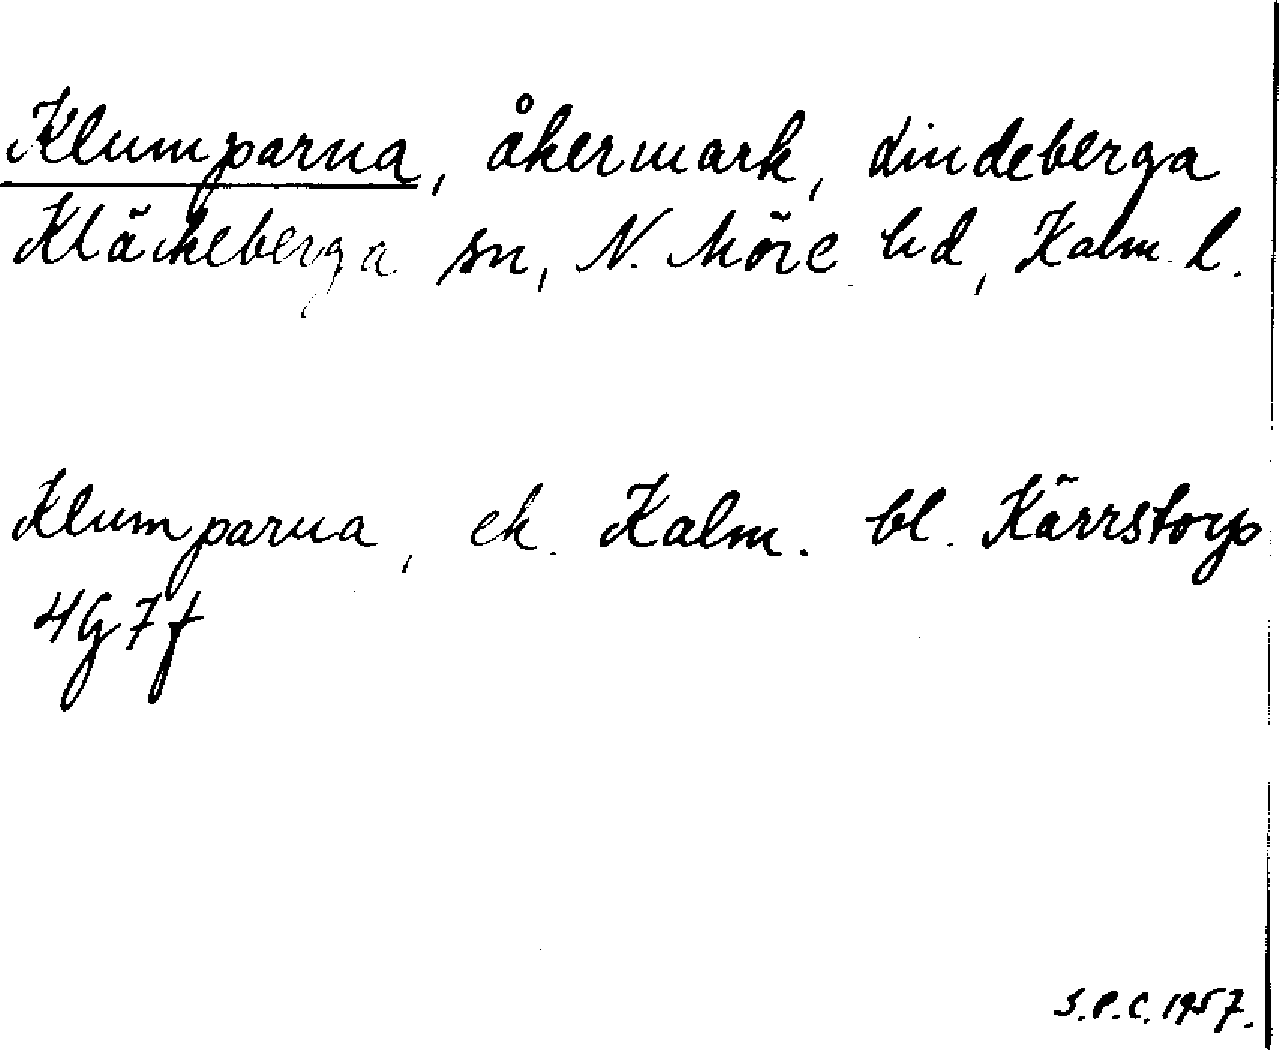 Klumparna, åkermark, Lindeberga
Kläckeberga sn, N. Möre hd, Kalm. l.
Klumparna, ek. Kalm. bl. Kärrstorp
4G7f
S.P.C. 1957.